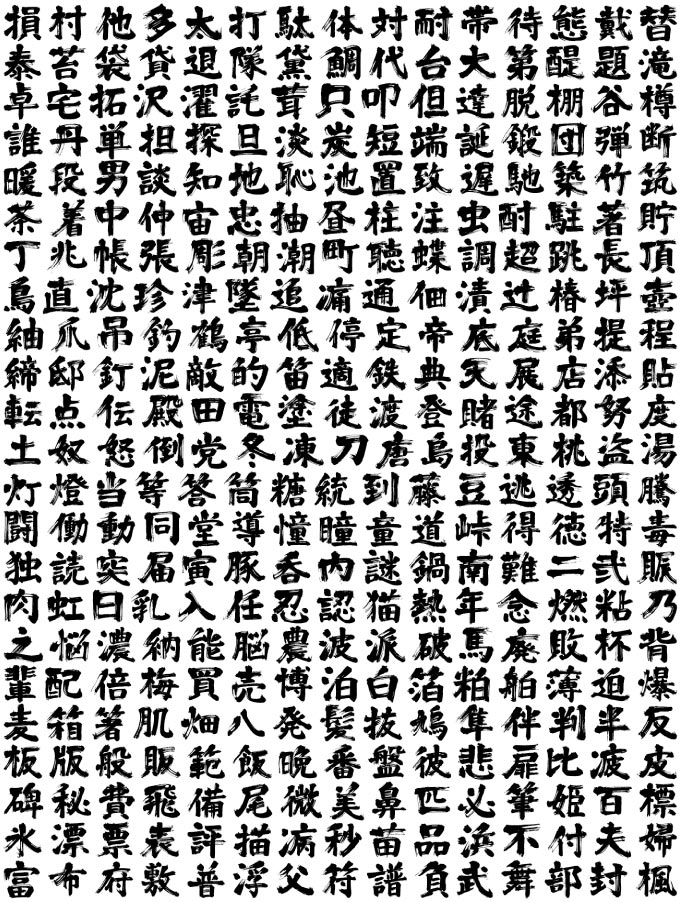 損村他多太打駄体対耐帯待態戴替
泰苔袋貸退隊黛鯛代台大第醍題滝
卓宅拓沢濯託茸只叩但達脱棚谷樽
誰丹単担探旦淡炭短端誕鍛団弾断
暖段男談知地恥池置致遅馳築竹筑
茶着中仲宙忠抽昼柱注虫酎駐著貯
丁兆帳張彫朝潮町聴蝶調超跳長頂
鳥直沈珍津墜追痛通佃漬辻椿坪壺
紬爪吊釣鶴亭低停定帝底庭弟提程
締邸釘泥敵的笛適鉄典天展店添貼
転点伝殿田電塗徒渡登賭途都努度
土奴怒倒党冬凍刀唐島投東桃盗湯
灯燈当等答筒糖統到藤豆逃透頭騰
闘働動同堂導憧瞳童道峠得徳特毒
独読突届寅豚呑内謎鍋南難二弐賑
肉虹日乳入任忍認猫熱年念燃粘乃
之悩濃納能脳農波派破馬廃敗杯背
輩配倍梅買売博泊白箔粕舶薄迫爆
麦箱箸肌畑八発髪抜鳩隼伴判半反
板版般販範飯晩番盤彼悲扉比疲皮
碑秘費飛備尾微美鼻匹必筆姫百標
氷漂票表評描病秒苗品浜不付夫婦
富布府敷普浮父符譜負武舞部封楓